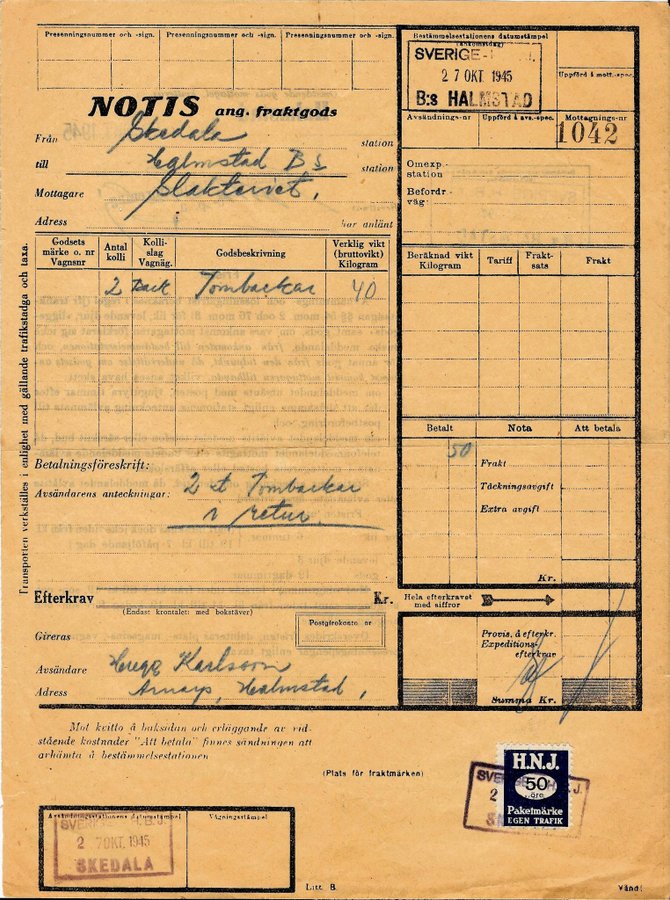 Presenningsnummer och -sign. Presenningsnummer och -sign. Presenningsnummer och -sign.
Bestämmelsestationens datumstämpel
(ankomstdag)
SVERIGE
27 OKT. 1945
B:s HALMSTAD
Uppförd å mott.-spec.
NOTIS ang. fraktgods
Avsändnings-nr Uppförd å avs.-spec. Mottagnings-nr
1042
Från Skedala station
till Halmstad B S station
Mottagare Slakteriet,
Adress har anlänt
Omexp.
station
Befordr.
väg:
Godsets märke o. nr Vagnsnr
Antal kolli
Kolli-slag Vagnäg.
Godsbeskrivning
Verklig vikt (bruttovikt) Kilogram
Beräknad vikt Kilogram
Tariff
Frakt-sats
Frakt
2 Back Tombackar 40
Transporten verkställes i enlighet med gällande trafikstadga och taxa.
Betalt Nota Att betala
50
Frakt
Täckningsavgift
Extra avgift
Kr.
Betalningsföreskrift:
Avsändarens anteckningar: 2 st Tombackar
i retur
Efterkrav Kr.
(Endast krontalet: med bokstäver)
Hela efterkravet
med siffror
Postgirokonto nr
Gireras
Provis. å efterkr.
Expeditions-
efterkrav
Summa Kr.
Avsändare Karlsson
Adress Halmstad,
Mot kvitto å baksidan och erläggande av vid-
stående kostnader "Att betala" finnes sändningen att
avhämta å bestämmelsestationen
(Plats för fraktmärken)
H.N.J.
50
öre
Paketmärke
EGEN TRAFIK
Avsändningsstationens datumstämpel
Vägningsstämpel
27 OKT. 1945
SKEDALA
Litt. 8.
Vänd!